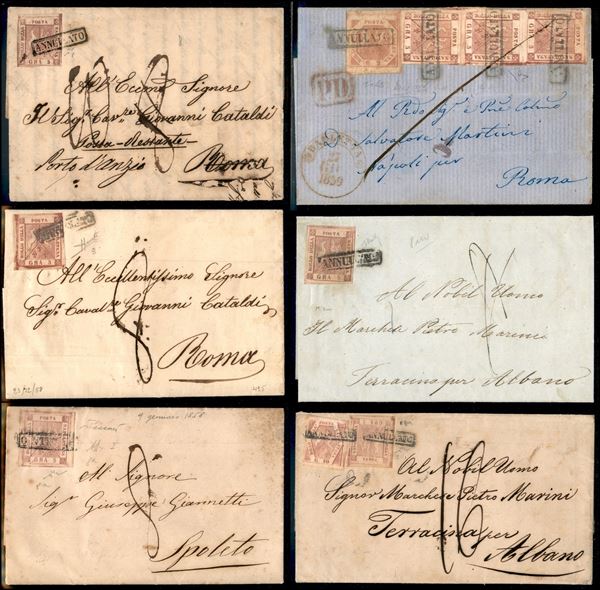 POSTA
GRA 5
ANNULLATO
All'Eccmo Signore
Il Sigr Cavre Giovanni Cataldi
Possa-Restante
Porto d'Anzio Roma
POSTA
ANNULLATO
ANNULLATO
ANNULLATO
ANNULLATO
GRA 5
GRA 5
GRA 5
PD
27
1859
Al
Salvatore Martini
Napoli per
Roma
POSTA
GRA 5
ANNULLATO
All'Eccellentissimo Signore
Sigr Cavalre Giovanni Cataldi
Roma
23/12/58
425
POSTA
GRA 5
ANNULLATO
Al Nobil Uomo
Il Marchese Pietro Marini
Terracina per Albano
9 gennaro 1858
POSTA
GRA 5
Al Signore
Sigr Giuseppe Giannetti
Spoleto
ANNULLATO
ANNULLATO
16
Al Nobil Uomo
Signor Marchese Pietro Marini
Terracina per
Albano